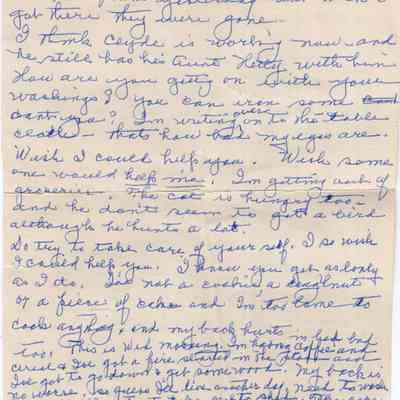 got there they were gone.
I think Clyde is working now and
he still has his Aunt Hetty with him
How are you getting on with your
washings? you can iron some
cant you? I'm writing out on to the table
cloth – thats how bad my eyes are.
Wish I could help you. Wish some
one would help me. I'm getting out of
groceries. The cat is hungry too –
and he dont seem to get a bird
although he hunts a lot.
Do try to take care of your self. I so wish
I could help you. I know you get as lonly
as I do. I've not a cookie, a doughnut
or a piece of cake and I'm too lame to
cook anything, and my back hurts
too. This is Wed morning. I'm having coffee and
cereal & I've got a fire started in the stove and
I've got to go down & get some wood. My back is
no worse, so guess I'll live another day, need to wash